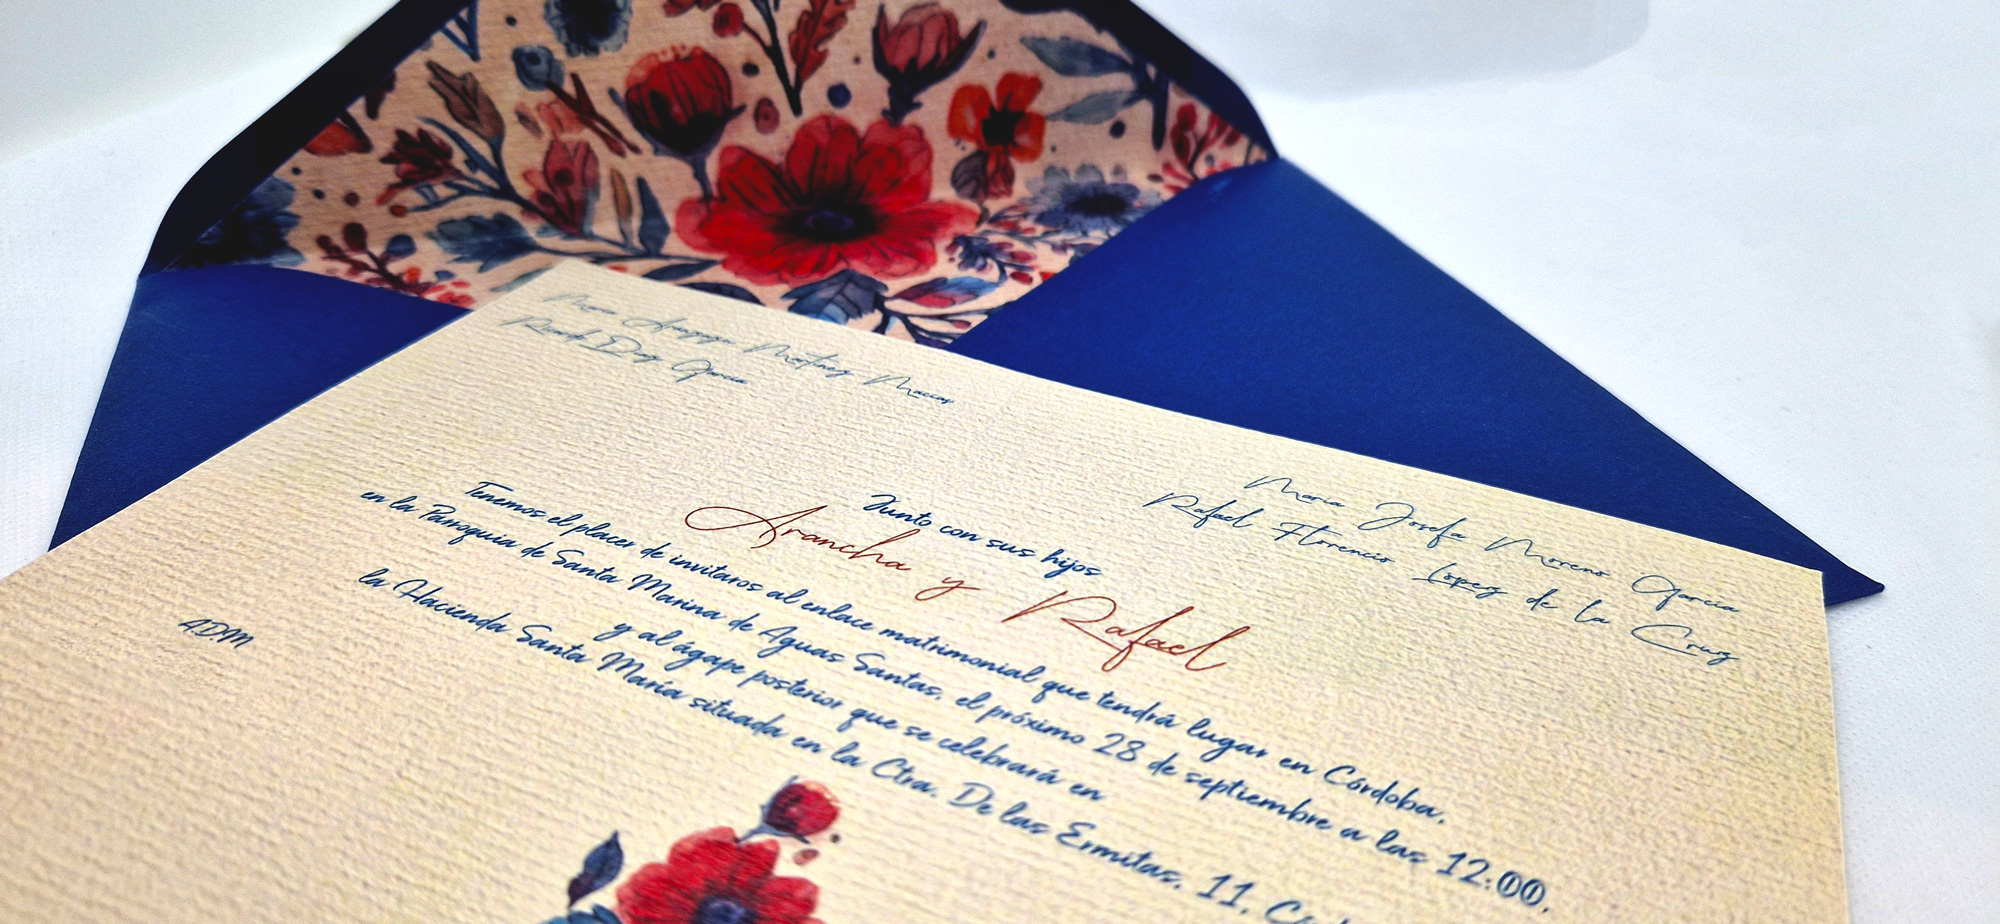 Martínez Macías
Ricardo García
María Josefa Moreno García
Rafael Florencio López de la Cruz
Junto con sus hijos
Arancha y Rafael
Tenemos el placer de invitaros al enlace matrimonial que tendrá lugar en Córdoba,
en la Parroquia de Santa Marina de Aguas Santas, el próximo 28 de septiembre a las 12:00,
y al ágape posterior que se celebrará en
la Hacienda Santa María situada en la Ctra. De las Ermitas, 11,
A.D.M